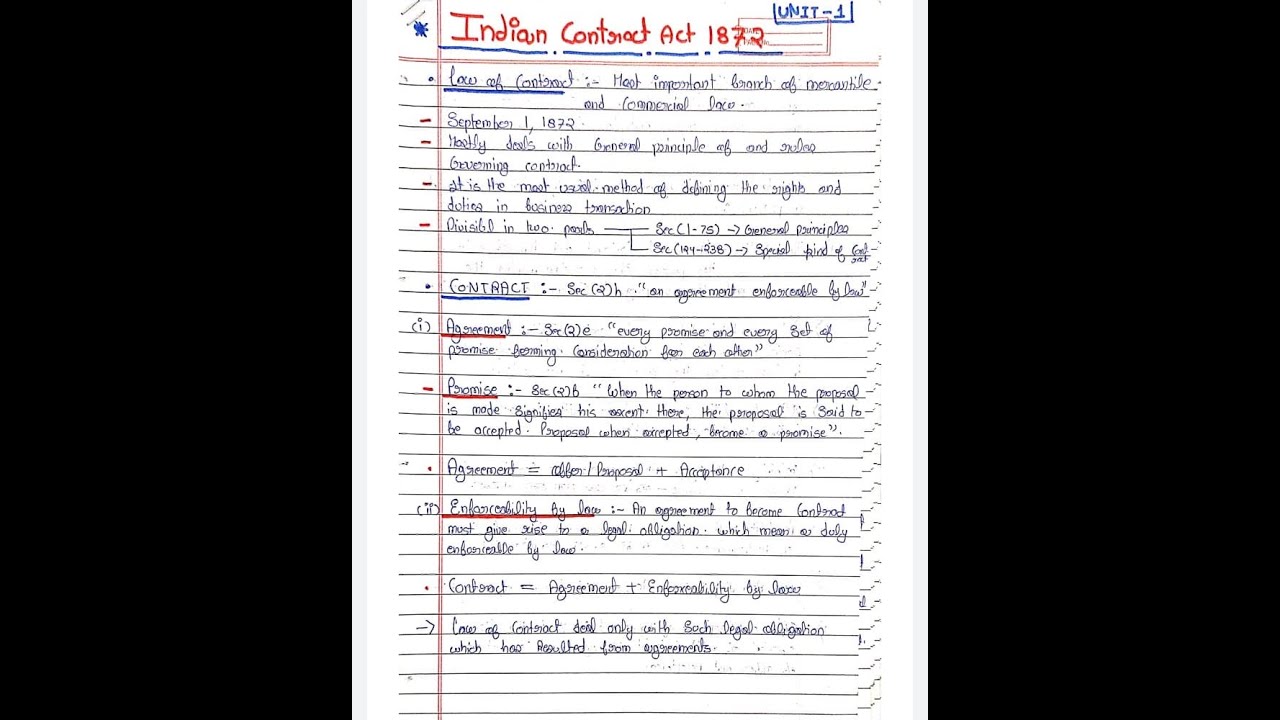 UNIT-1
* Indian Contract Act 1872
• Law of Contract :- Most important branch of mercantile
and Commercial law.
- September 1, 1872
- Mostly deals with General principle of and rules
Governing contract.
- It is the most usual method of defining the rights and
duties in business transaction
- Divisible in two parts Sec (1-75) → General principles
Sec (124-238) → Special kind of Contract
• CONTRACT :- Sec (2) h "an agreement enforceable by law"
(i) Agreement :- Sec (2) e "every promise and every set of
promise forming Consideration for each other"
- Promise :- Sec (2) b "When the person to whom the proposal
is made signifies his assent there, the proposal is said to
be accepted. Proposal when accepted, become a promise".
• Agreement = offer / Proposal + Acceptance
(ii) Enforceability by law :- An agreement to become Contract
must give rise to a legal obligation which mean a duly
enforceable by law.
• Contract = Agreement + Enforceability by law
→ Law of Contract deal only with Such legal obligation
which has Resulted from agreements.